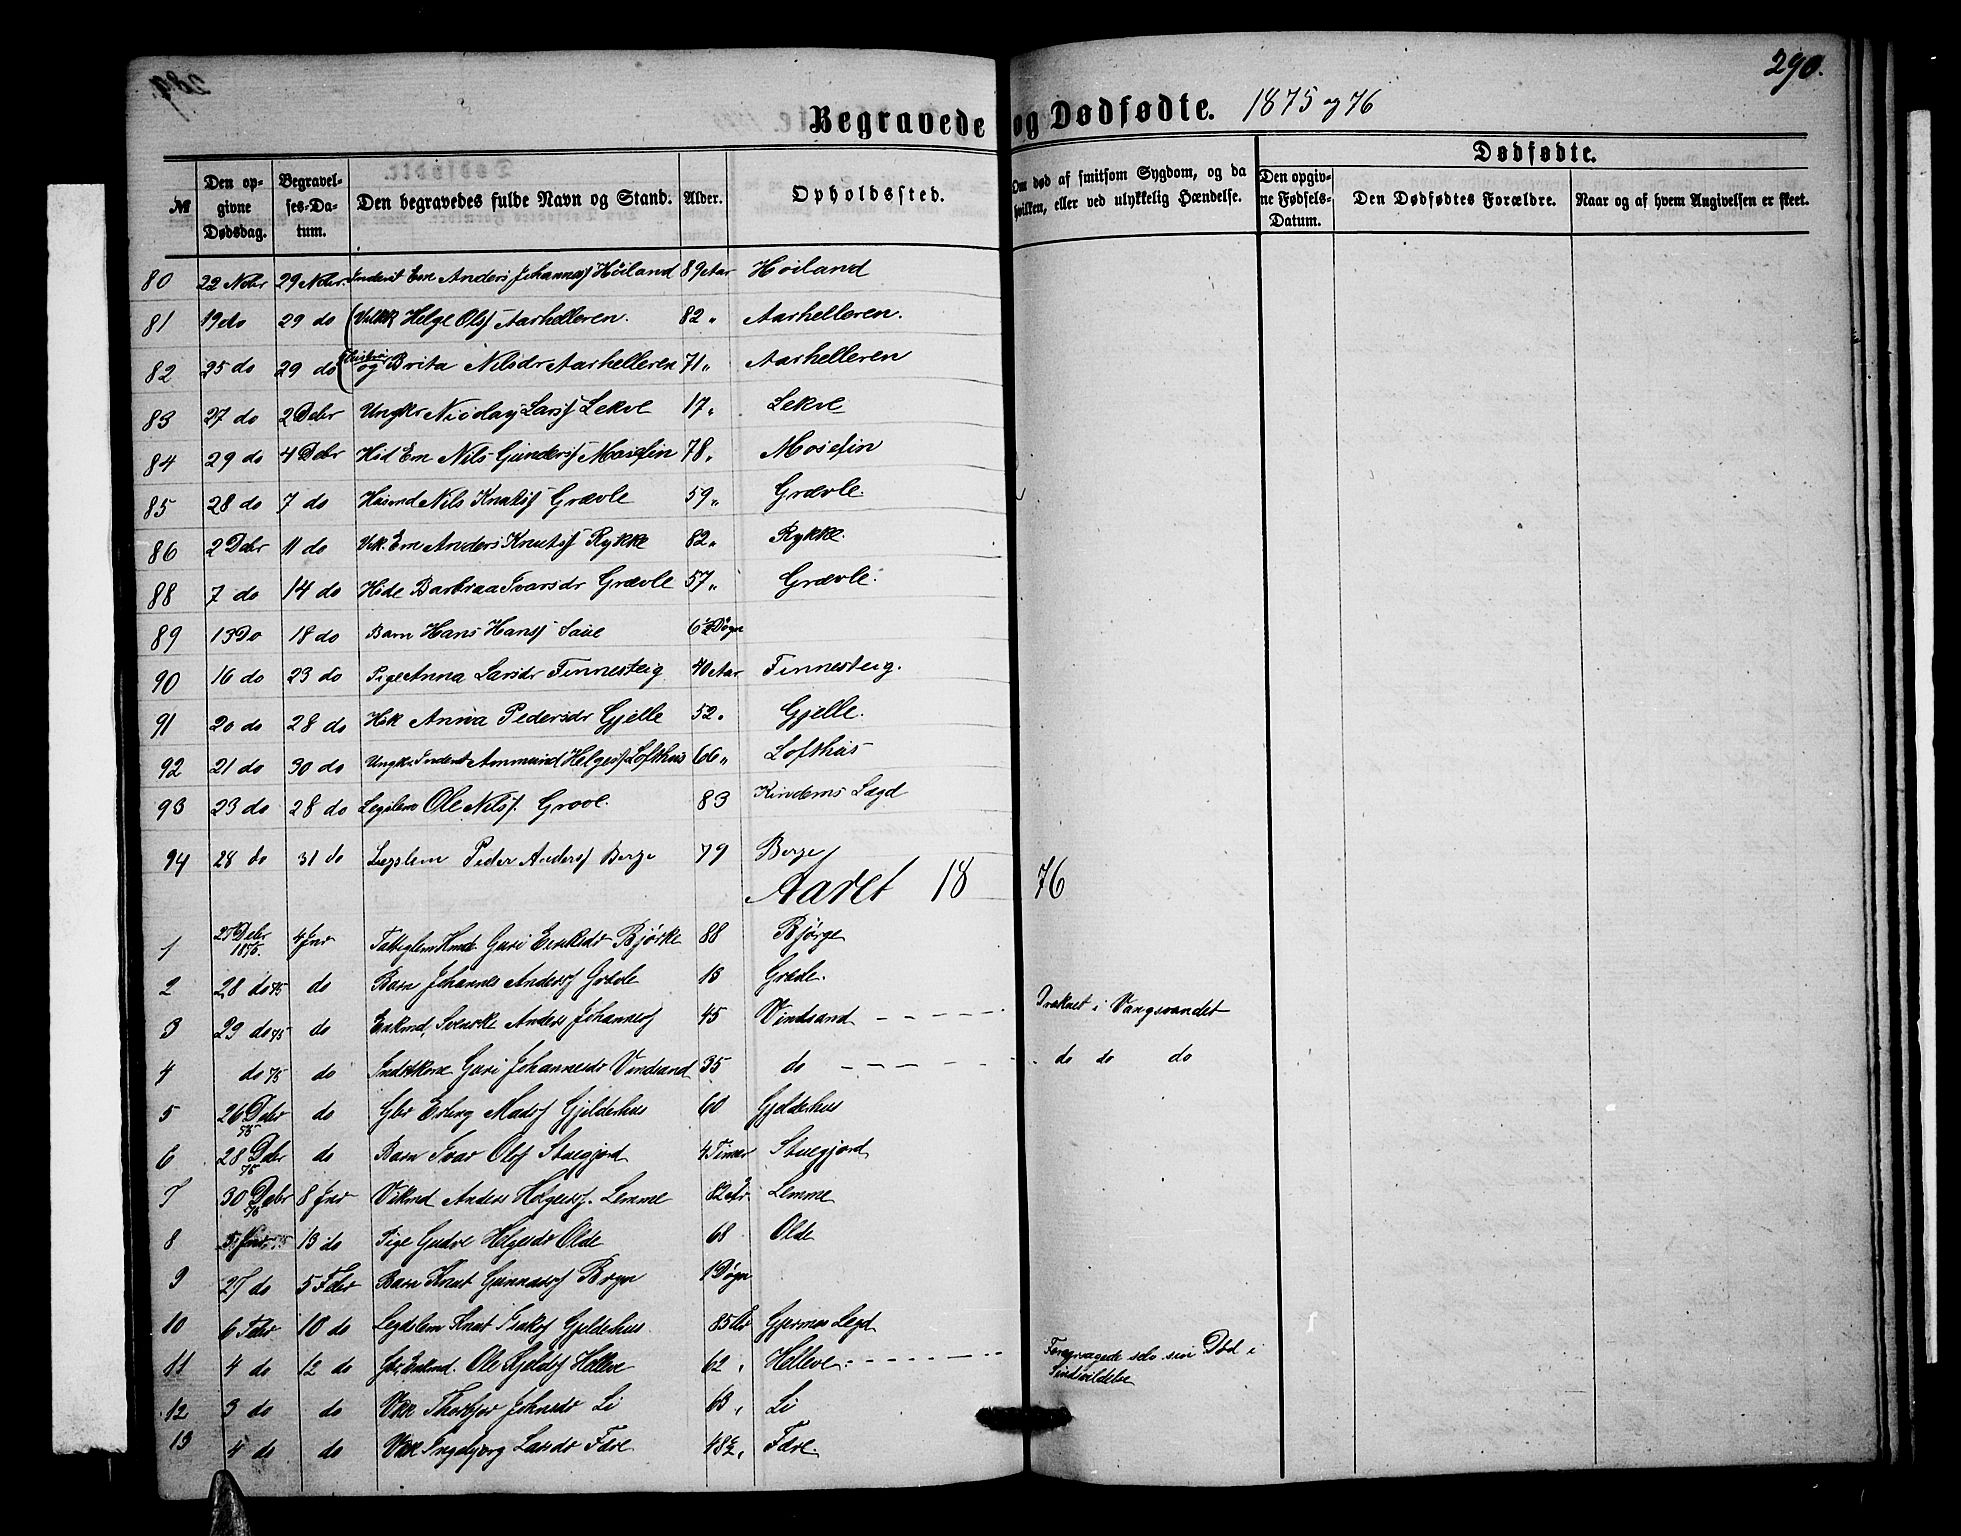 290.
Begravede og Dødfødte. 1875 og 76
№
Den opgivne Dødsdag.
Begravelses-Datum.
Den begravedes fulde Navn og Stand.
Alder.
Opholdssted.
Om død af smitsom Sygdom, og da hvilken, eller ved ulykkelig Hændelse.
Dødfødte.
Den opgivne Fødsels-Datum.
Den Dødfødtes Forældre.
Naar og af hvem Angivelsen er skeet.
80 22 Nobr 29 Nobr. Inderst Em Anders Johannesf Höiland 89 Aar Höiland
81 19 do 29 do Helge Olsf Aarhelleren. 82 " Aarhelleren.
82 25 do 29 do og Hustru Brita Nilsdr Aarhelleren 71 " Aarhelleren
83 27 do 2 Debr Ungkr Nicolay Larsf Lekve 17 " Lekve
84 29 do 4 Debr Em Nils Gundersf Mosefin 78 " Mosefin
85 28 do 7 do Husmd Nils Knutsf Grævle 59 " Grævle.
86 2 Debr 11 do Em Anders Knutsf Rykke 82 " Rykke.
88 7 do 14 do Barbraa Ivarsdr Grævle 57 " Grævle.
89 13 Do 18 do Barn Hans Hansf Saue 6 1/2 Døgn
90 16 do 23 do Pige Anna Larsdr Finnesteig 40 Aar Finnesteig.
91 20 do 28 do Hk Anna Pedersdr Gjelle 52 " Gjelle.
92 21 do 30 do Ungkr Inderst Ammund Helgesf Lofthus 66 " Lofthus
93 23 do 28 do Legslem Ole Nilsf. Grove. 83 Kindems Lægd
94 28 do 31 do Legslem Peder Andersf Berge 79 Berge
Aaret 1876
1 27 Debr 1875. 4 Jnr Guri Eriksdr Bjørke 88 Bjørge
2 28 do 75 do Barn Johannes Andersf Grævle
3 29 do 75 do Enkmd, Svenske Anders Johannesf 45 Vindsand Druknet i Vangsvandet
4 do 75 do Guri Johannesdr Vindsand 35 do do do do
5 26 Debr 75 do Gbr Erling Madsf Gjelderhus 60 Gjelderhus
6 28 Debr 75 do Barn Ivar Olsf Stuegjord 4 Timer Stuegjord
7 30 Debr 75 8 Jnr Vkmd Anders Helgesf. Lemme 82 Ar Lemme
8 13 do Pige Gudve Helgesdr Olde 68 Olde
9 27 do 5 Febr Barn Knut Gunnarsf 1 Døgn
10 6 Febr 10 do Legdslem Knut Isaksf Gjelderhus 85 Ar Gjernes Legd
11 4 do 12 do Gbr, Enkmd. Ole Kjeldsf Helleve 62 " Helleve Foraarsagede selv sin Død i Sindsvildelse
12 3 do do Vkk Thorbjør Johnsdr Li 63 " Li
13 4 do do Vkk Ingebjørg Larsdr Fære 48 1/2 " Fære.